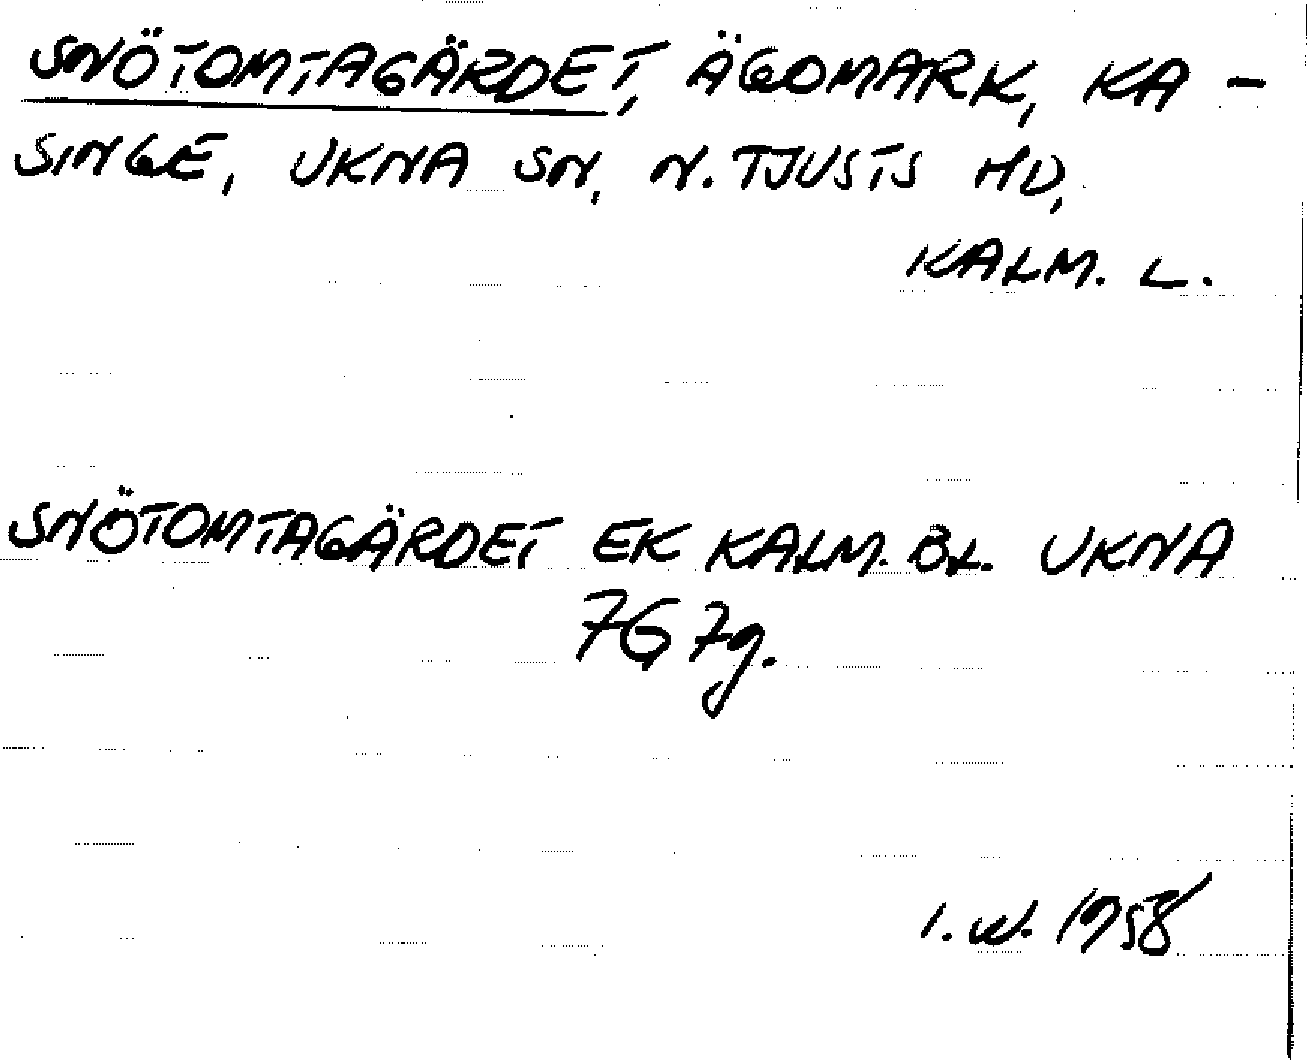 SNÖTOMTAGÄRDET, ÄGOMARK, KA-
SINGE, UKNA SN, N. TJUSTS HD,
KALM. L.
SNÖTOMTAGÄRDET EK KALM. BL. UKNA
7G 7g.
I. W. 1958